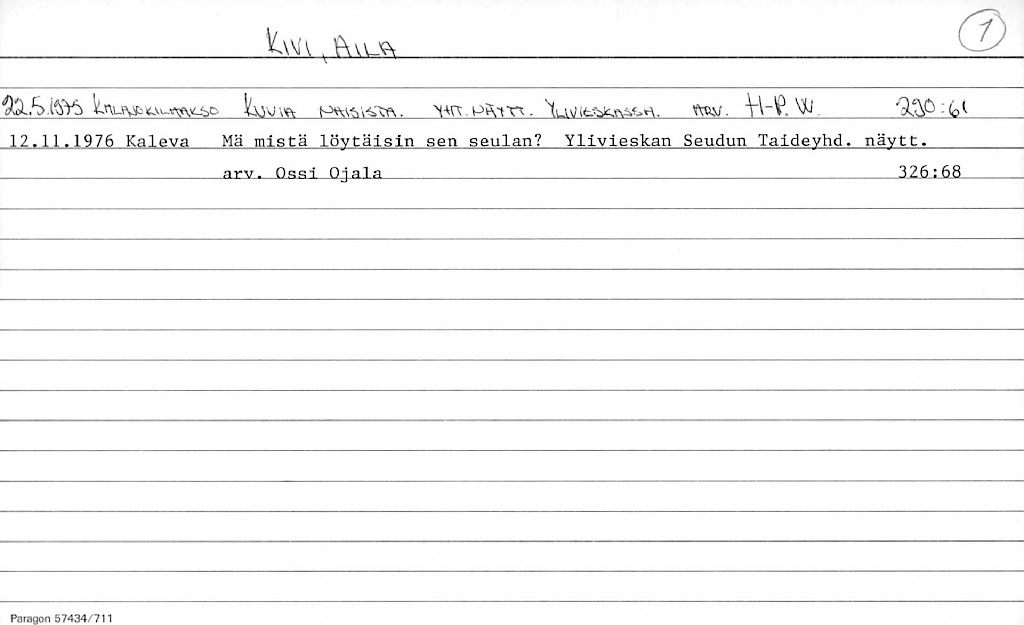 KIVI, AILA
1
22.5.1975 KALAJOKILAAKSO KUVIA NAISISTA. YHT. NÄYTT. YLIVIESKASSA. ARV. H-P. W. 290:61
12.11.1976 Kaleva Mä mistä löytäisin sen seulan? Ylivieskan Seudun Taideyhd. näytt.
arv. Ossi Ojala 326:68
Paragon 57434/711